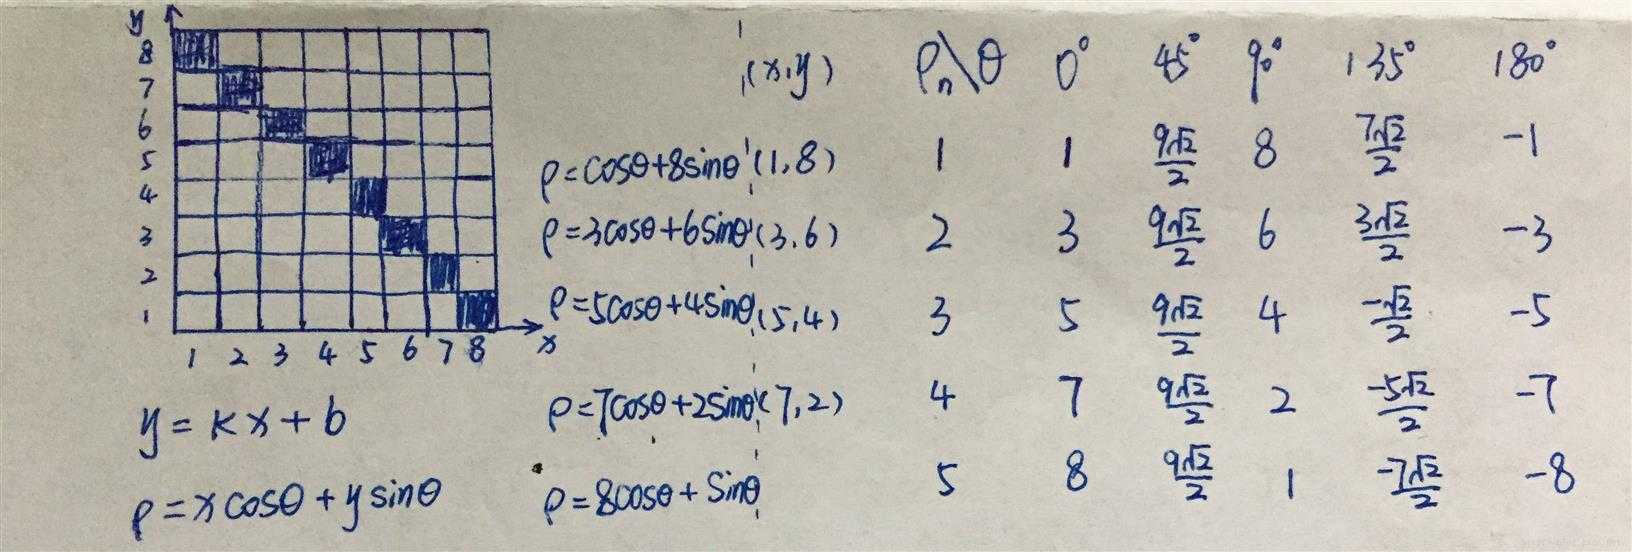 y
8
7
6
5
4
3
2
1
1 2 3 4 5 6 7 8 x
y = kx + b
ρ = x cosθ + y sinθ
(x,y) ρn\θ 0° 45° 90° 135° 180°
ρ=cosθ+8sinθ (1,8) 1 1 9√2/2 8 7√2/2 -1
ρ=3cosθ+6sinθ (3,6) 2 3 9√2/2 6 3√2/2 -3
ρ=5cosθ+4sinθ (5,4) 3 5 9√2/2 4 -√2/2 -5
ρ=7cosθ+2sinθ (7,2) 4 7 9√2/2 2 -5√2/2 -7
ρ=8cosθ+sinθ 5 8 9√2/2 1 -7√2/2 -8